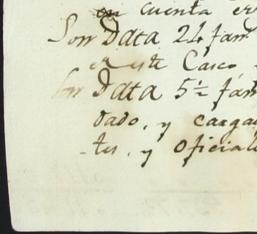 en cuenta en
Son Data 24 fan
en este Casco
Son Data 5½ fan
dado, y carga
-tes, y oficial